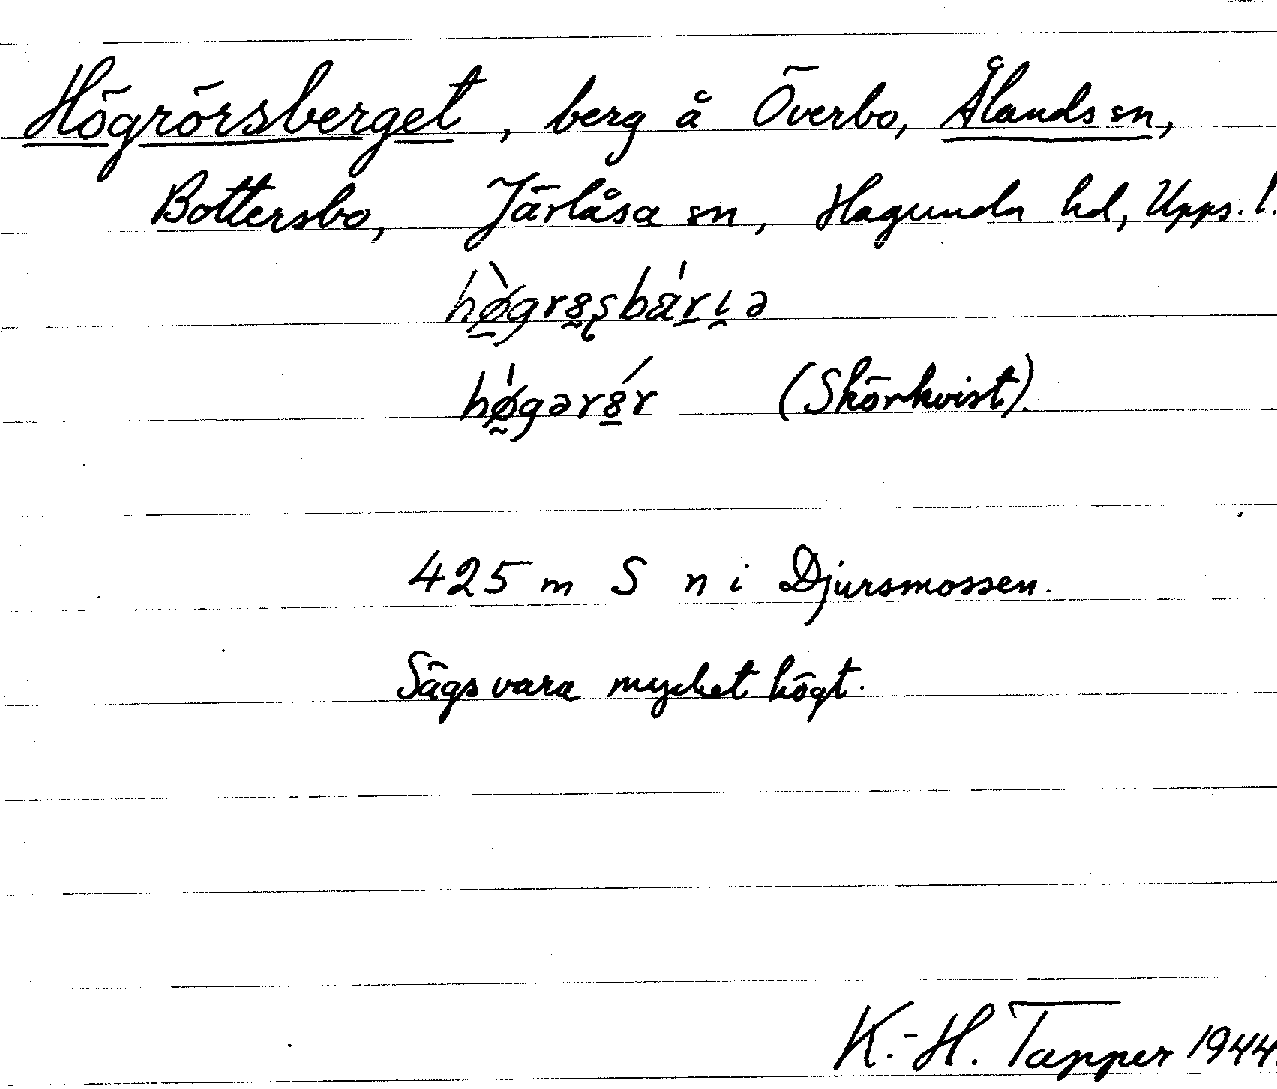 Högrörsberget, berg å Överbo, Ålands sn,
Bottersbo, Järlåsa sn, Hagunda hd, Upps. l.
(Skörkvist).
425 m S n i Djursmossen.
Sägs vara mycket högt.
K.-H. Tapper 1944.